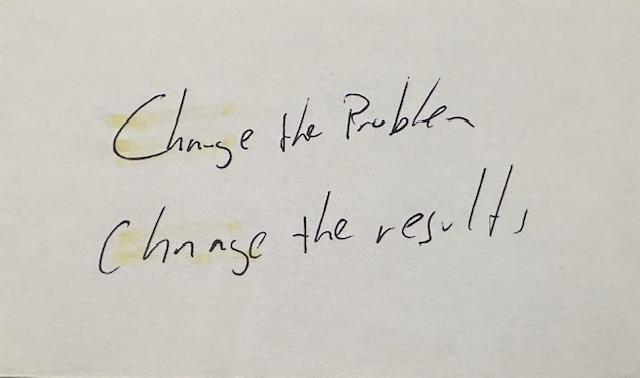 Change the Problem
Change the results